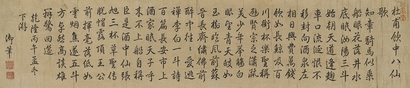 杜甫飲中八仙
歌
知章騎馬似乘
船眼花落井水
底眠汝陽三斗
始朝天道逢麴
車口流涎恨不
移封向酒泉左
相日興費萬錢
飲如長鯨吸百
川銜杯樂聖稱
避賢宗之瀟灑
美少年舉觴白
眼望青天皎如
玉樹臨風前蘇
晉長齋繡佛前
醉中往往愛逃
禪李白一斗詩
百篇長安市上
酒家眠天子呼
來不上船自稱
臣是酒中仙張
旭三杯草聖傳
脫帽露頂王公
前揮毫落紙如
雲烟焦遂五斗
方卓然高談雄
辯驚四筵
乾隆丙午孟冬
下澣
御筆